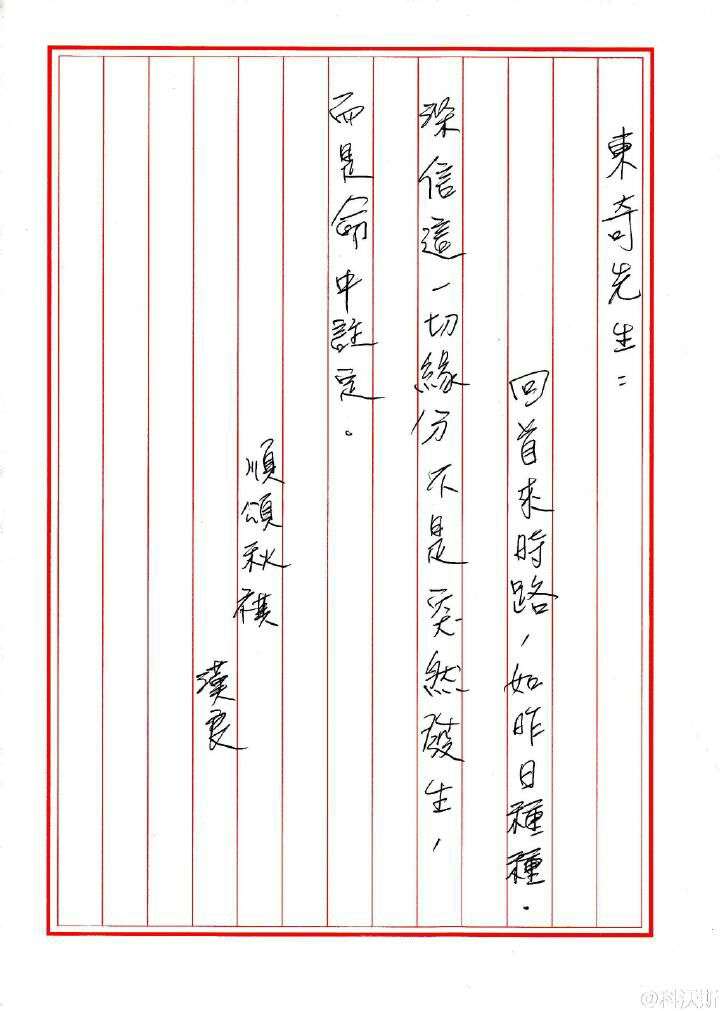 東奇先生：
回首來時路，如昨日種種．
深信這一切緣份不是突然發生，
而是命中註定．
順頌秋祺
漢良
@科沃斯